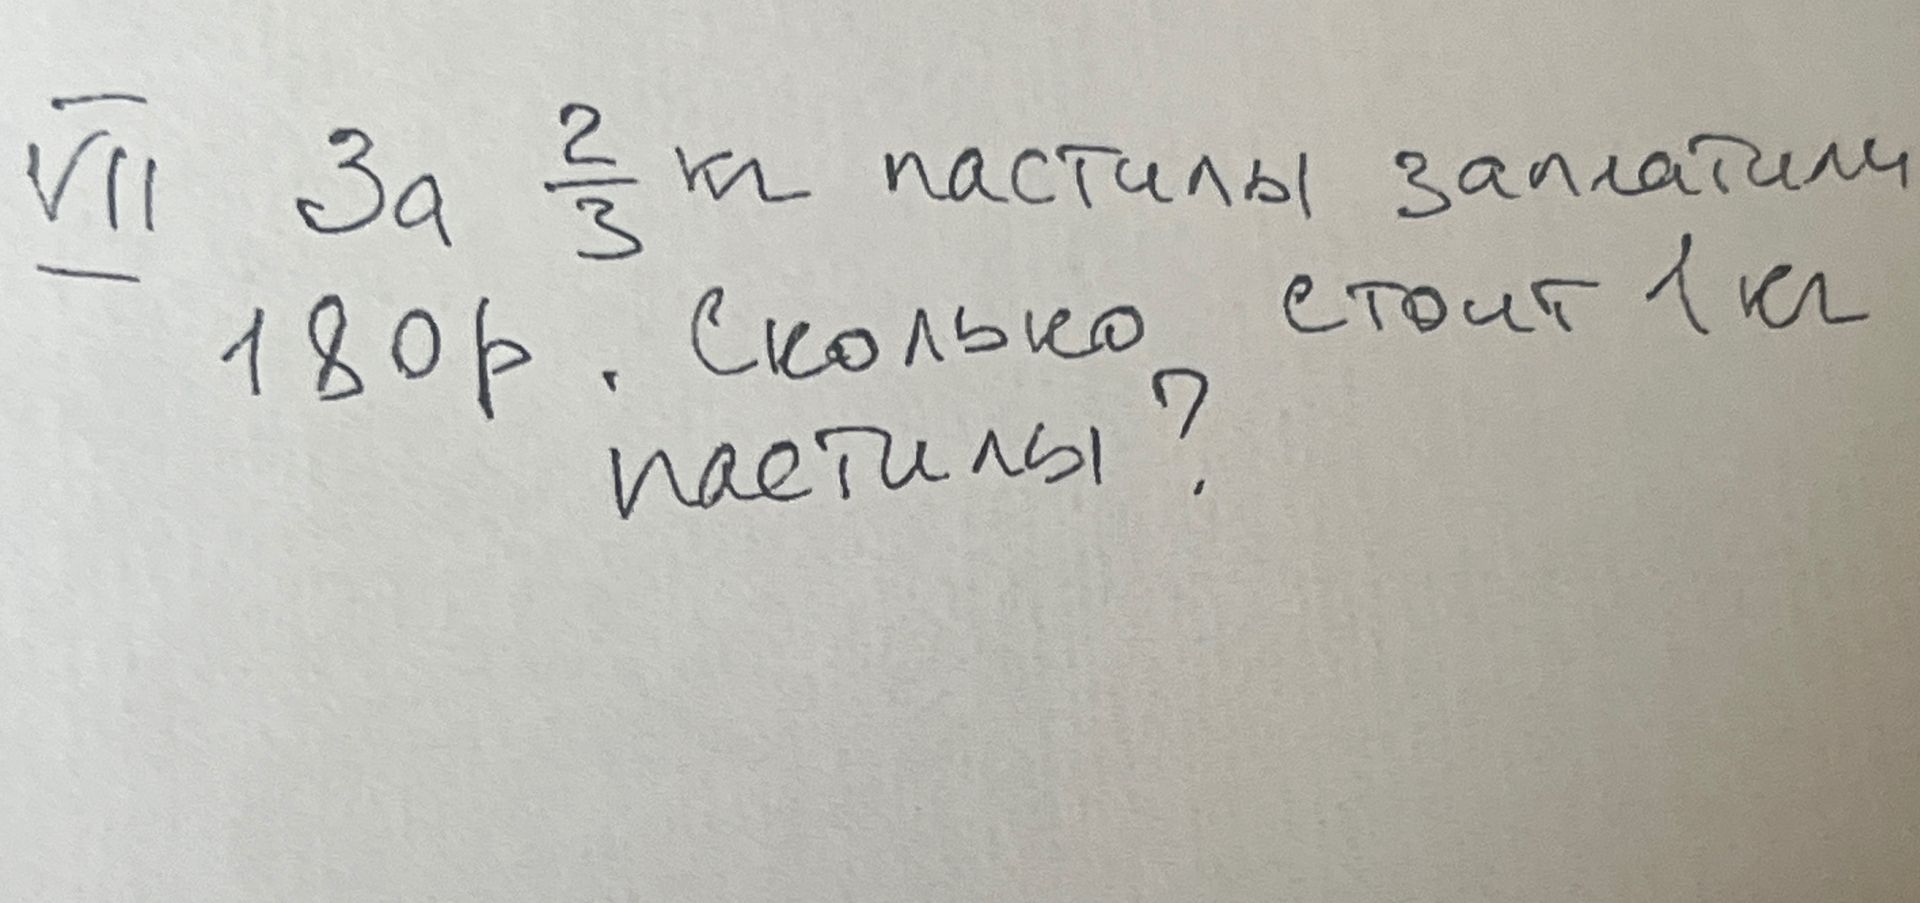 VII За 2/3 кг пастилы заплатили
180р. Сколько стоит 1 кг
пастилы?